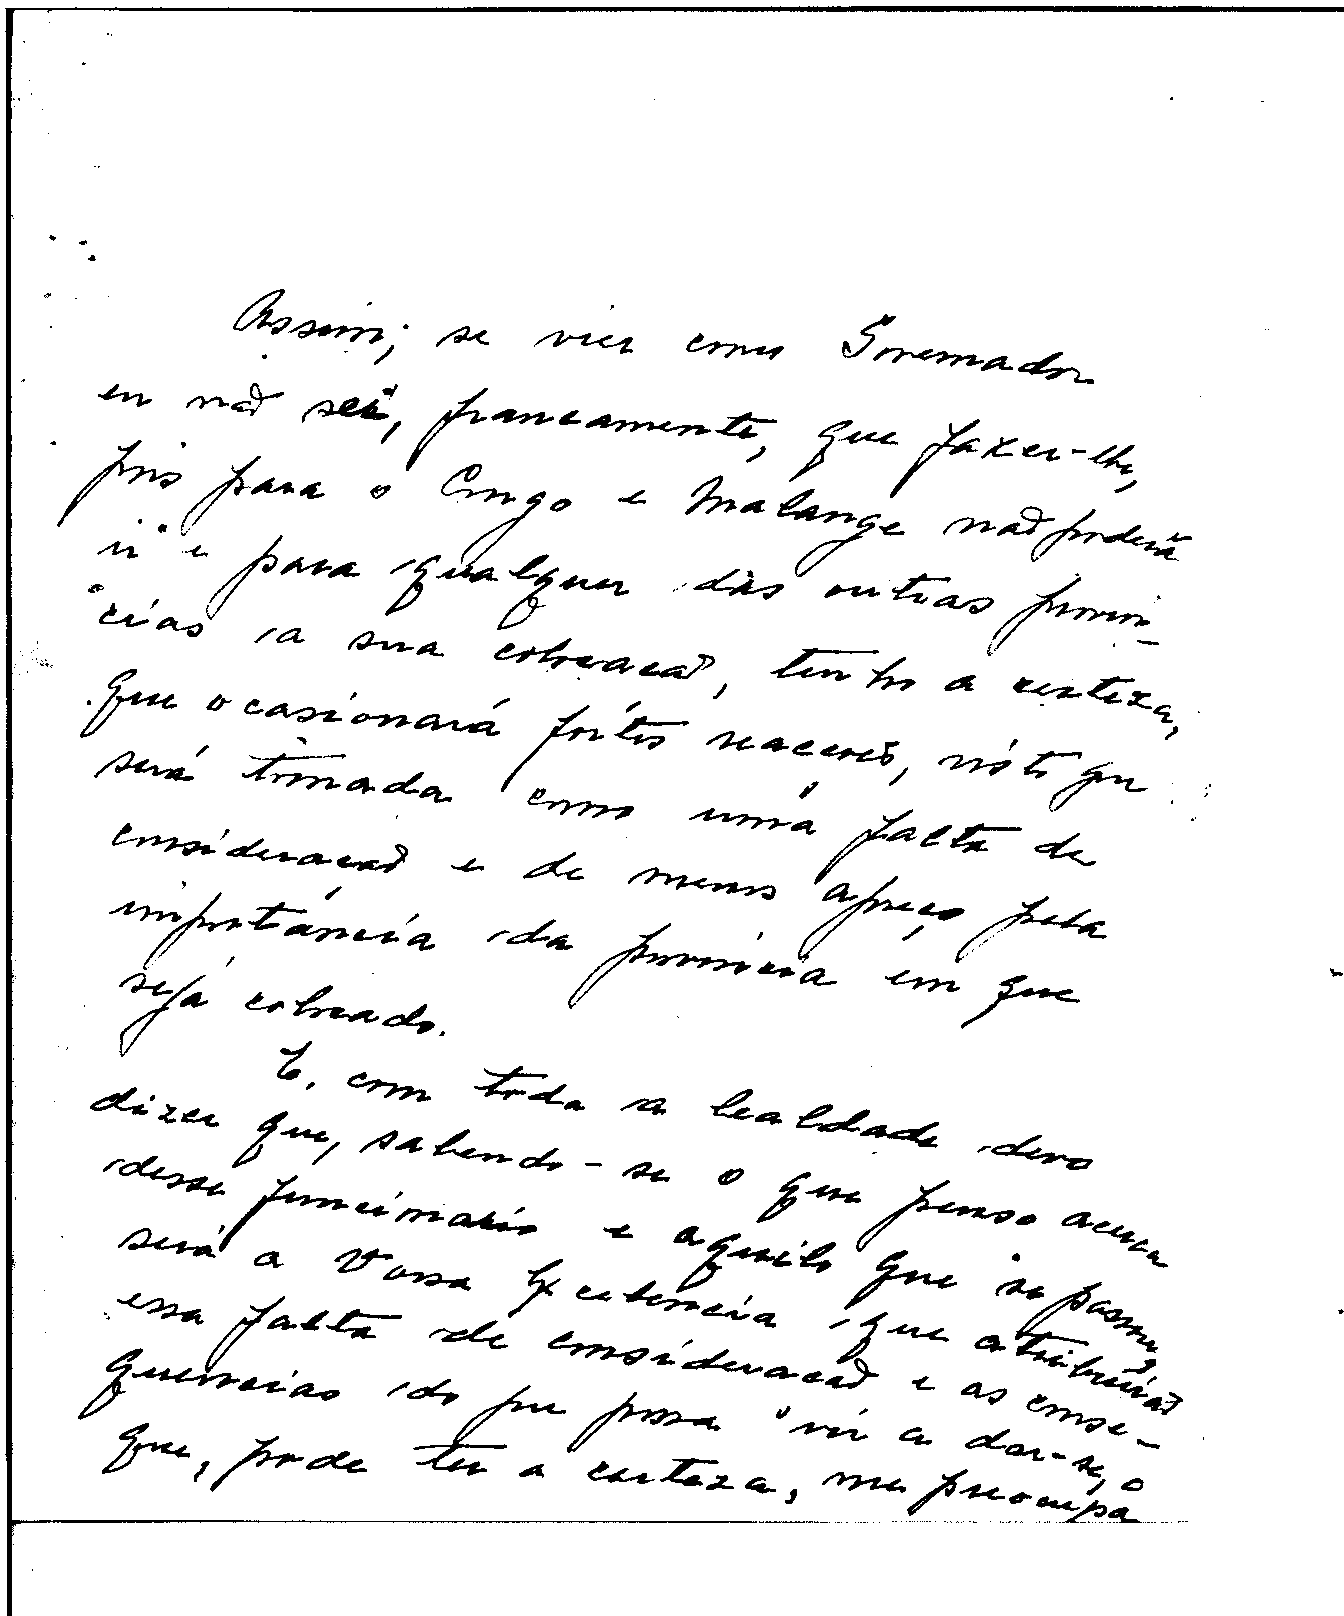 Assim, se vier como Governador
eu não sei, francamente, que fazer-lhe,
pois para o Congo e Malange não poderá
ir e para qualquer das outras provin-
cias a sua colocação, tenho a certeza,
que ocasionará fortes reacções, visto que
será tomada como uma falta de
consideração e de menos apreço pela
importância da provincia em que
seja colocado.
E, com toda a lealdade devo
dizer que, sabendo-se o que penso acerca
desse funcionario e aquilo que se passou,
será a Vossa Excelencia que atribuirão
essa falta de consideração e as conse-
quencias do que possa vir a dar-se, o
que, pode ter a certeza, me preocupa